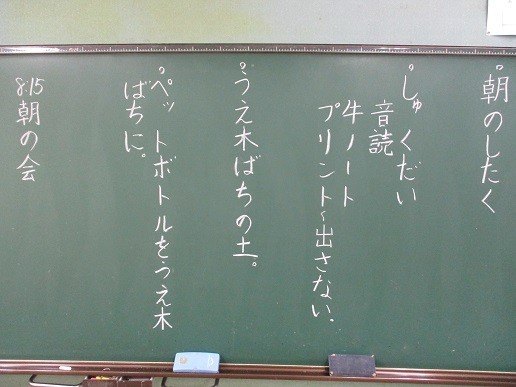 °朝のしたく
°しゅくだい
音読
牛ノート
プリント〜出さない.
°うえ木ばちの土。
°ペットボトルをうえ木
ばちに。
8:15 朝の会